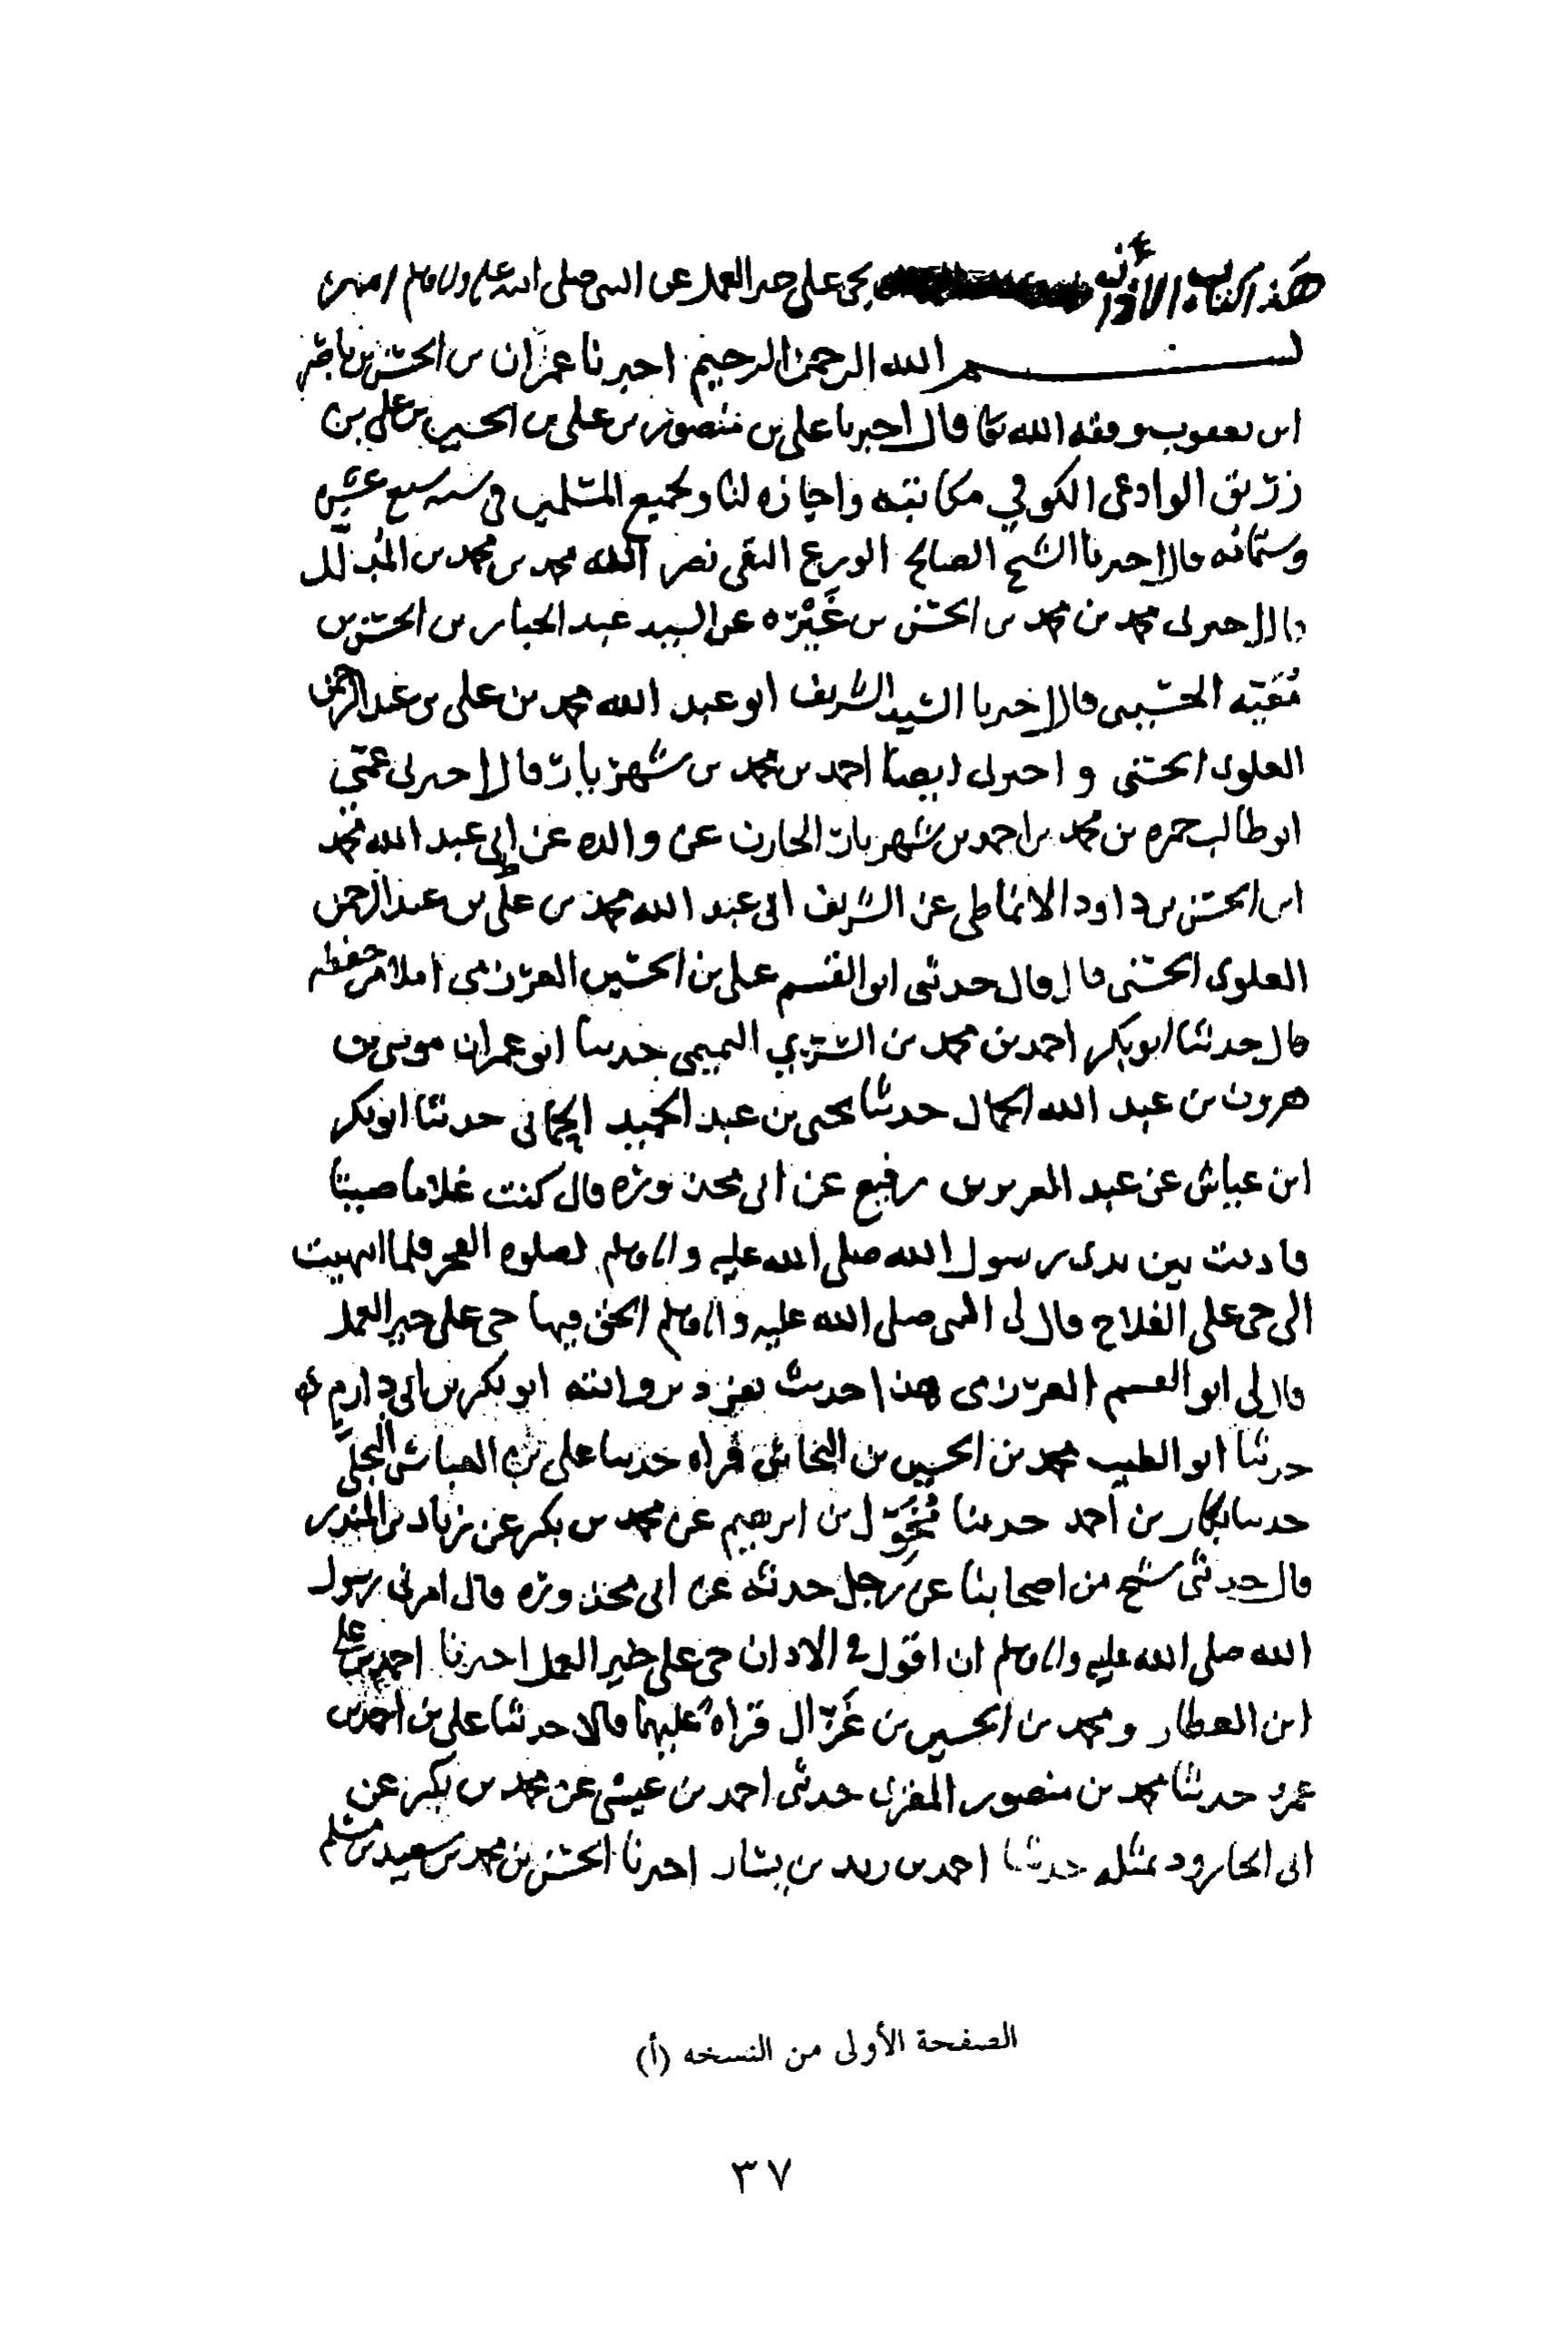 هذا كتاب الأذان بحي على خير العمل عن النبي صلى الله عليه واله وسلم
بسم الله الرحمن الرحيم اخبرنا عمران بن الحسن بن ناصر
ابن يعقوب وفقه الله تعالى قال اخبرنا علي بن منصور بن علي بن الحسين بن علي بن
زريق الوادعي الكوفي مكاتبة واجازه لنا ولجميع المسلمين في سنه سبع عشر
وستمائه قال اخبرنا الشيخ الصالح الورع التقي نصر الله محمد بن محمد بن المدلل
قال اخبرني محمد بن محمد بن الحسن بن غبره عن السيد عبد الجبار بن الحسن بن
مُعَيّه الحسيني قال اخبرنا السيد الشريف ابو عبد الله محمد بن علي بن عبد الرحمن
العلوي الحسني و اخبرني ايضا احمد بن محمد بن شهريار قال اخبرني عمي
ابو طالب حمزه بن محمد بن احمد بن شهريار الخازن عن والده عن ابي عبد الله محمد
ابن الحسن بن داود الانماطي عن الشريف ابي عبد الله محمد بن علي بن عبد الرحمن
العلوي الحسني قال قال حدثني ابو القسم علي بن الحسين العرزمي املا من حفظه
قال حدثنا ابو بكر احمد بن محمد بن السري التميمي حدثنا ابو عمران موسى بن
هرون بن عبد الله الحمال حدثنا يحيى بن عبد الحميد الحماني حدثنا ابو بكر
ابن عياش عن عبد العزيز بن رفيع عن ابي محذوره قال كنت غلاما صبيتا
فاذنت بين يدي رسول الله صلى الله عليه واله وسلم لصلوه الفجر فلما انتهيت
الى حي على الفلاح قال لي النبي صلى الله عليه واله وسلم الحق فيها حي على خير العمل
قال لي ابو القسم العرزمي هذا حديث تفرد بروايته ابو بكر بن ابي دارم
حدثنا ابو الطيب محمد بن الحسين بن النخاس قراه حدثنا علي بن العباس البجلي
حدثنا بكار بن احمد حدثنا مُخَوَّل بن ابرهيم عن محمد بن بكر عن زياد بن المنذر
قال حدثني شيخ من اصحابنا عن رجل حدثه عن ابي محذوره قال امرني رسول
الله صلى الله عليه واله وسلم ان اقول في الاذان حي على خير العمل اخبرنا احمد بن علي
ابن العطار ومحمد بن الحسين بن غَزّال قراه عليهما قالا حدثنا علي بن احمد بن
عمرو حدثنا محمد بن منصور المقري حدثني احمد بن عيسى عن محمد بن بكر عن
ابي الجارود بمثله حدثنا احمد بن زيد بن بشار اخبرنا الحسن بن محمد بن سعيد بن مسلم
الصفحة الأولى من النسخه (أ)
٣٧